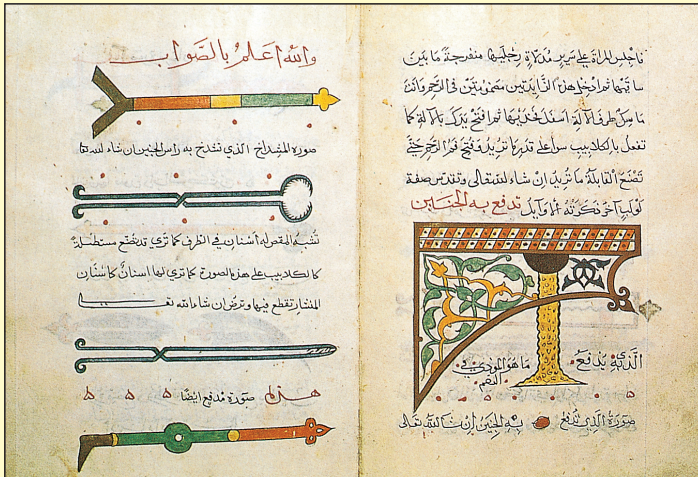 فاجلس المراة على سرير مدلاة رجليها منفرجة ما بين
ساقيها ثم ادخل هذا الزايدتين مضمومتين في الرحم وانت
ماسك طرف الآلة اسفل فخذيها ثم افتح يدك بالآلة كما
تفعل بالكلاليب سوا على قدر ما تريد فتح فم الرحم حتى
تصنع القابلة ما تريد ان شا الله تعالى صفة
لولب آخر ذكرته الأوايل تدفع به الجنين
الذي به يدفع ما هو الموذي في
الفم
صورة الذي تدفع به الجنين إن شا الله تعالى
والله أعلم بالصواب
صورة المشداخ الذي تشدخ به راس الجنين ان شاء الله تعا
تشبه المقص له أسنان في الطرف كما تري قد تصنع مستطيلة
كالكلاليب على هذه الصورة كما تري لها أسنان كأسنان
المنشار تقطع فيها وترض ان شاء الله تعـ
هذه صورة مدفع ايضا